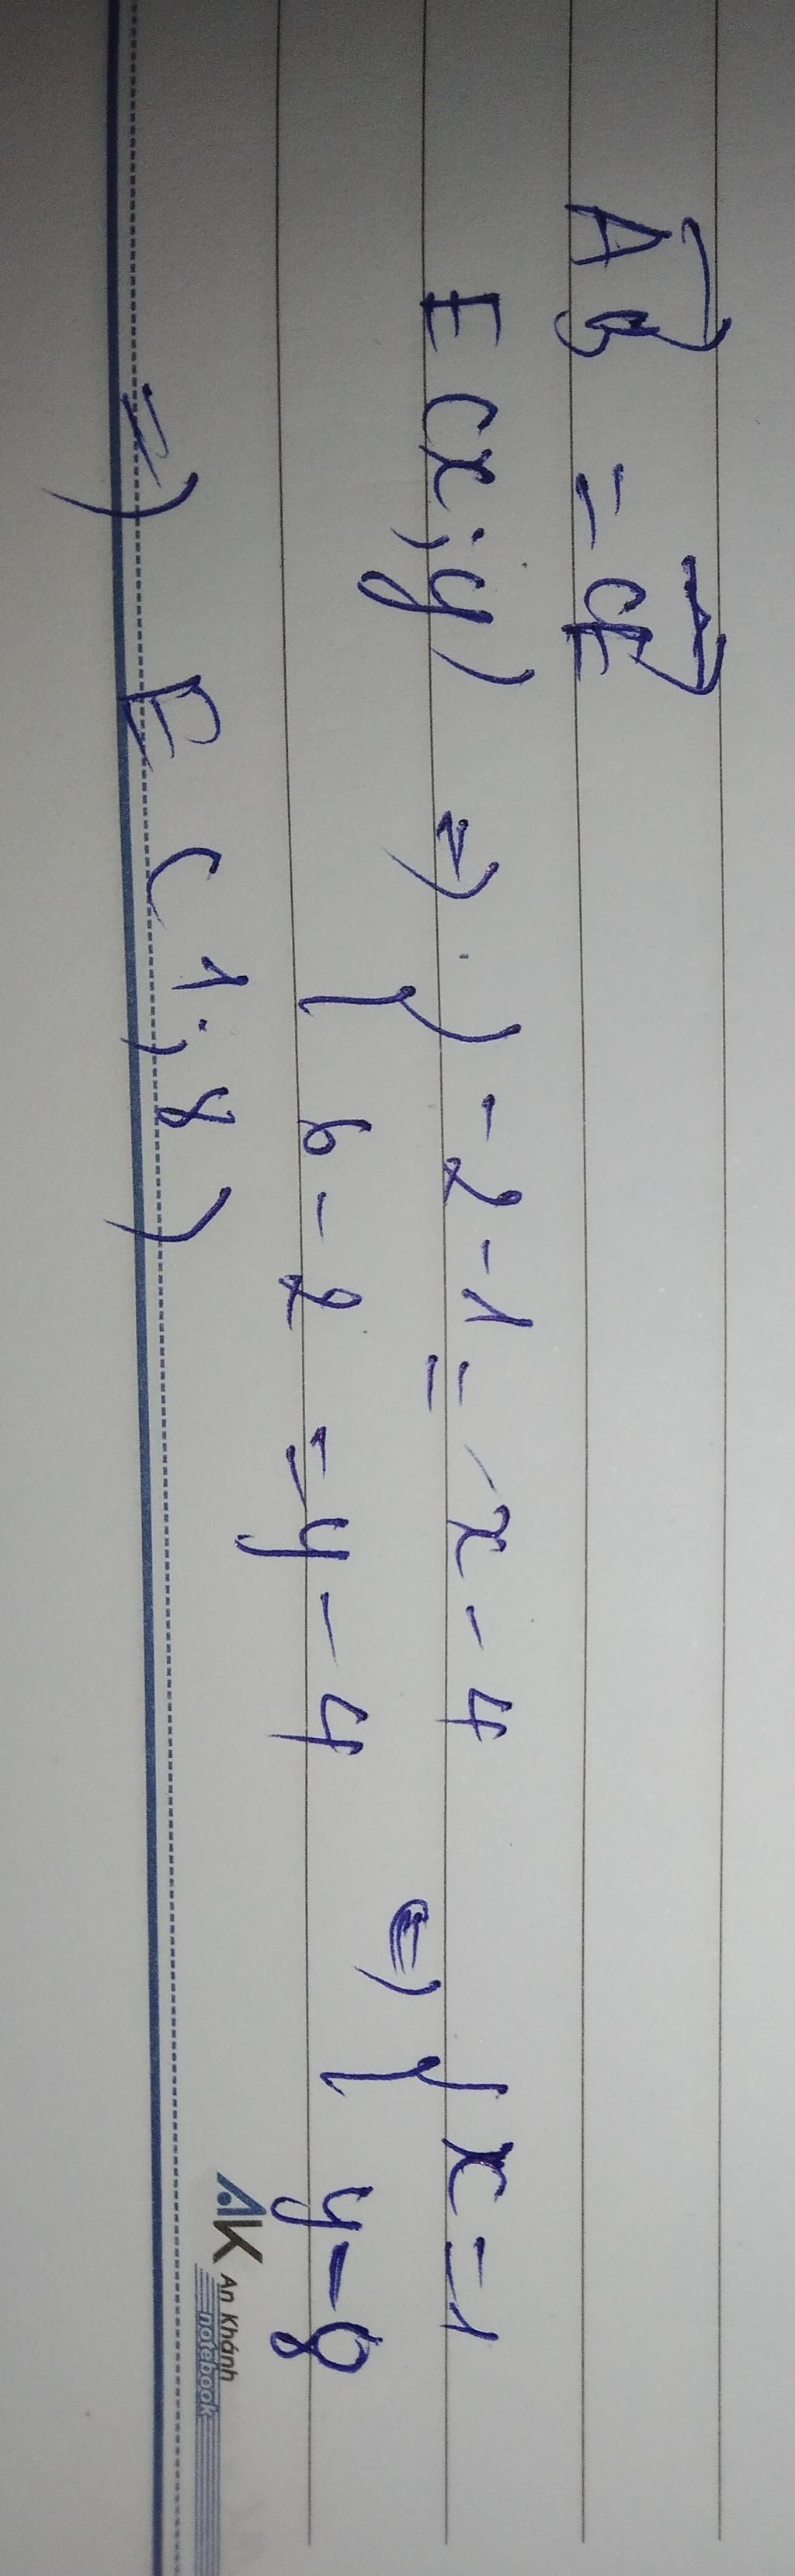 AB = CE
E (x; y) => { -2 - 1 = x - 4 <=> { x = 1
6 - 2 = y - 4 y = 8
=> E ( 1 ; 8 )
AK An Khánh
notebook